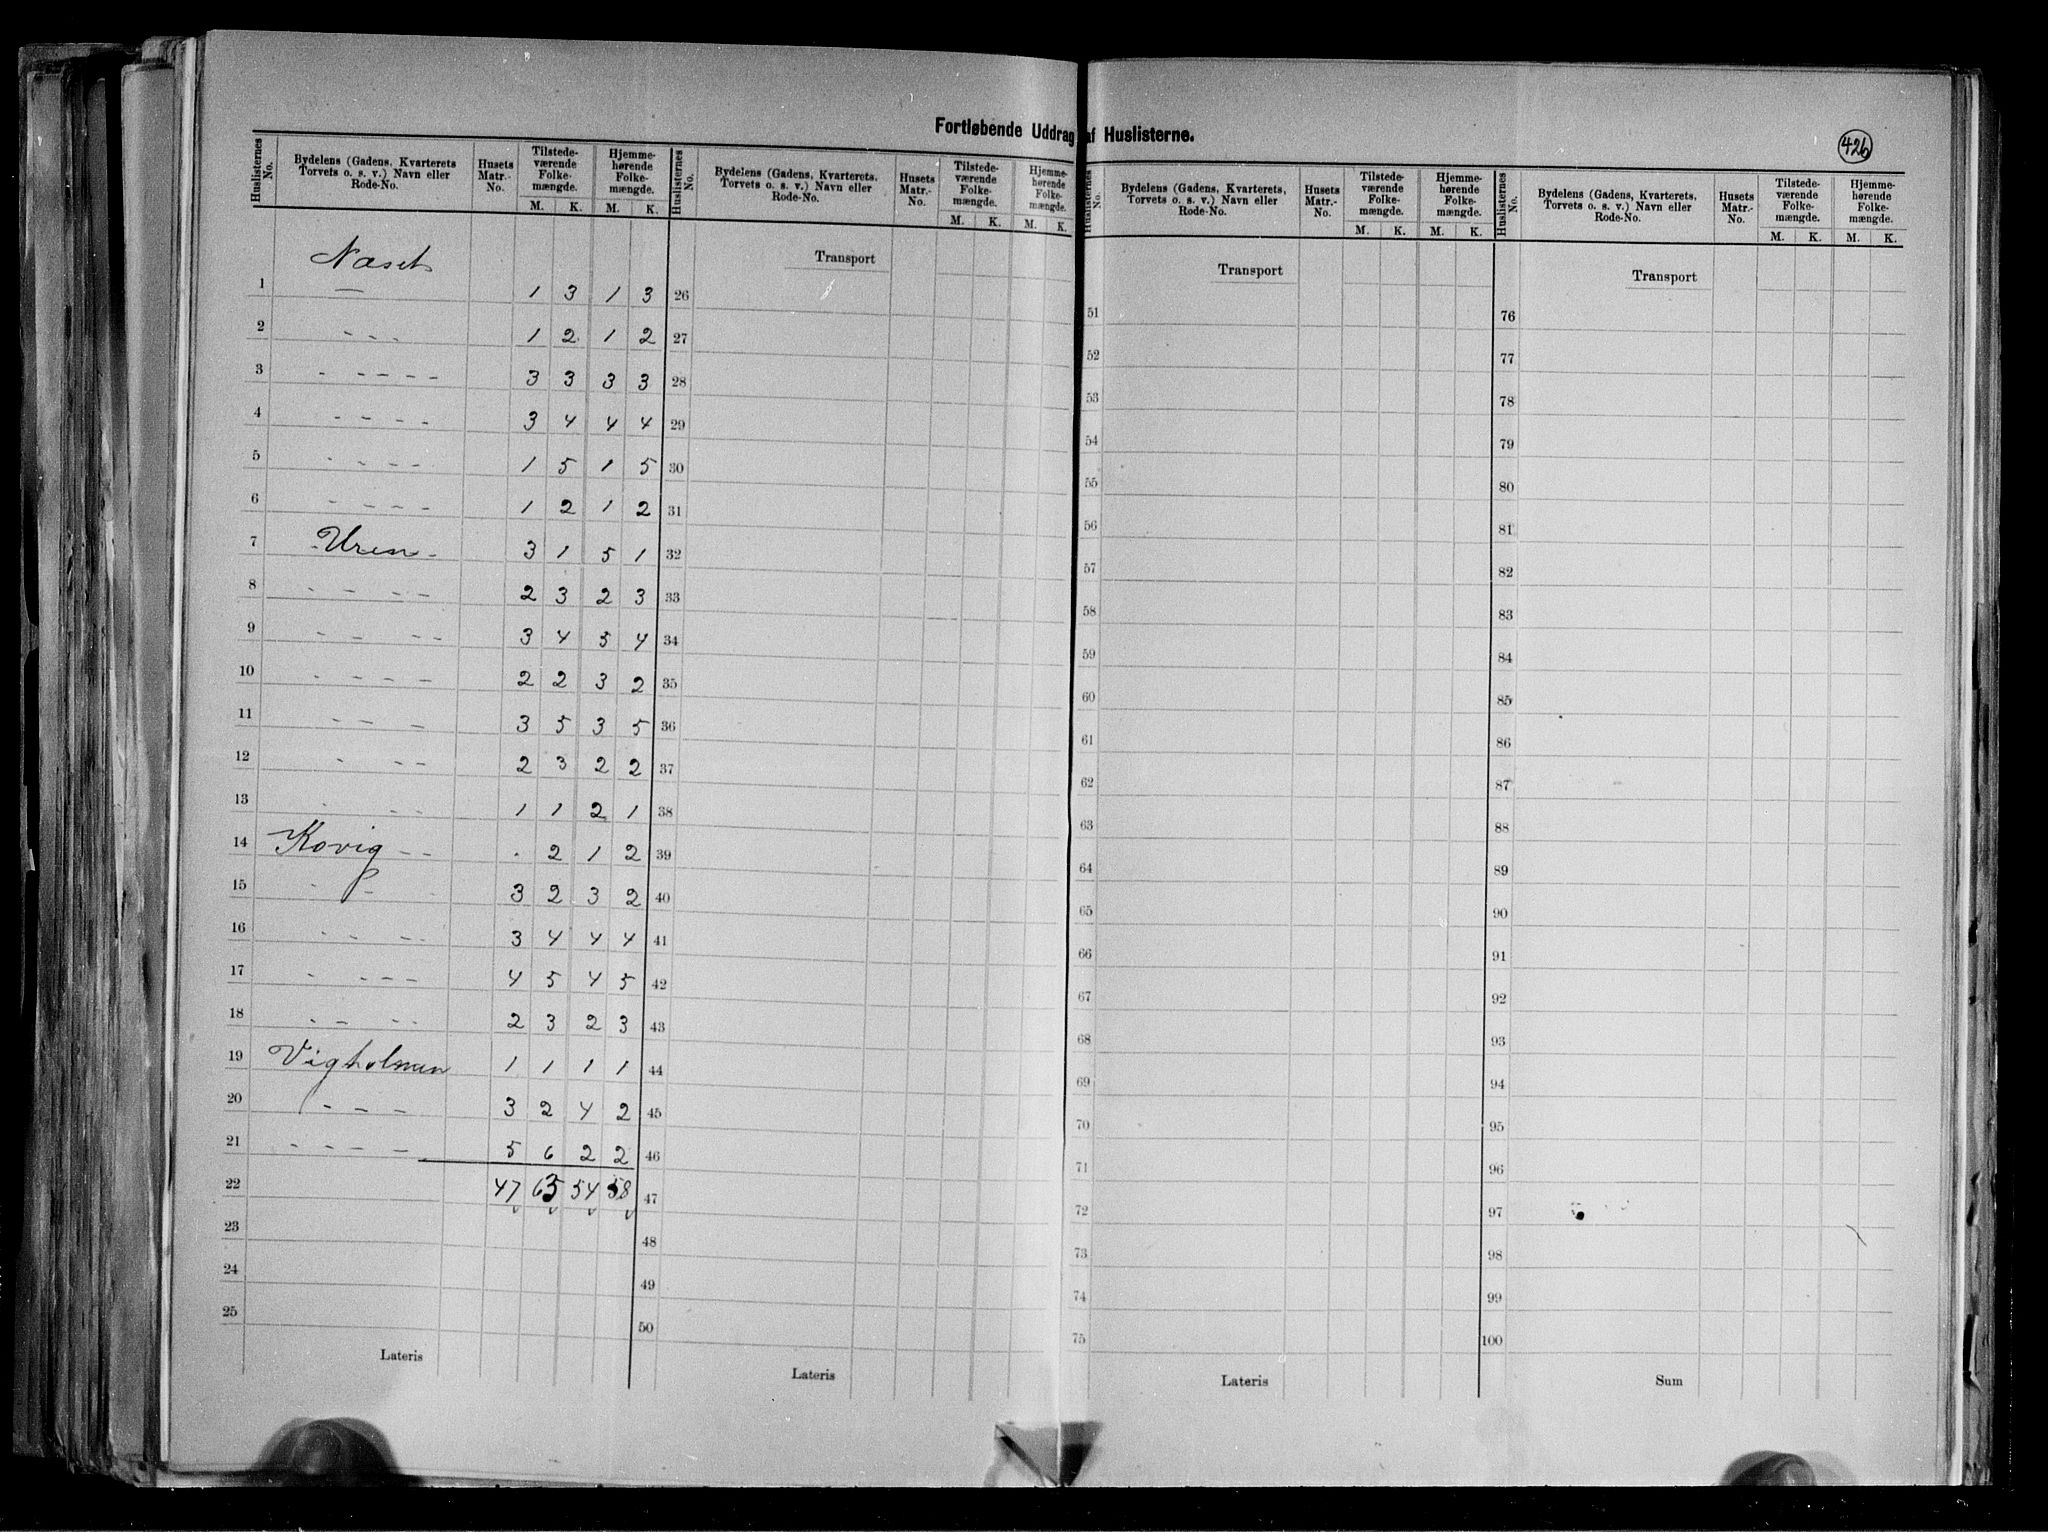 Fortløbende Uddrag af Huslisterne.
426
Huslisternes No. | Bydelens (Gadens, Kvarterets Torvets o. s. v.) Navn eller Rode-No. | Husets Matr.-No. | Tilstedeværende Folkemængde. M. K. | Hjemmehørende Folkemængde. M. K.
Huslisternes No. | Bydelens (Gadens, Kvarterets, Torvets o. s. v.) Navn eller Rode-No. | Husets Matr.-No. | Tilstedeværende Folkemængde. M. K. | Hjemmehørende Folkemængde. M. K.
Huslisternes No. | Bydelens (Gadens, Kvarterets, Torvets o. s. v.) Navn eller Rode-No. | Husets Matr.-No. | Tilstedeværende Folkemængde. M. K. | Hjemmehørende Folkemængde. M. K.
Huslisternes No. | Bydelens (Gadens, Kvarterets, Torvets o. s. v.) Navn eller Rode-No. | Husets Matr.-No. | Tilstedeværende Folkemængde. M. K. | Hjemmehørende Folkemængde. M. K.
Næset
1 — 1 3 1 3
2 - - - 1 2 1 2
3 - - - - - 3 3 3 3
4 - - - - 3 4 4 4
5 - - - - 1 5 1 5
6 - - - - 1 2 1 2
7 - Uren - 3 1 5 1
8 - - - - 2 3 2 3
9 - - - - 3 4 5 4
10 - - - - 2 2 3 2
11 - - - 3 5 3 5
12 - - - 2 3 2 2
13 - - - 1 1 2 1
14 Kovig - - . 2 1 2
15 - - - 3 2 3 2
16 - - - - 3 4 4 4
17 - - - - 4 5 4 5
18 - - - - 2 3 2 3
19 Vigholmen 1 1 1 1
20 - - - 3 2 4 2
21 - - - - 5 6 2 2
22 47 65 54 58
23
24
25
Lateris
Transport
26
27
28
29
30
31
32
33
34
35
36
37
38
39
40
41
42
43
44
45
46
47
48
49
50
Lateris
Transport
51
52
53
54
55
56
57
58
59
60
61
62
63
64
65
66
67
68
69
70
71
72
73
74
75
Lateris
Transport
76
77
78
79
80
81
82
83
84
85
86
87
88
89
90
91
92
93
94
95
96
97
98
99
100
Sum